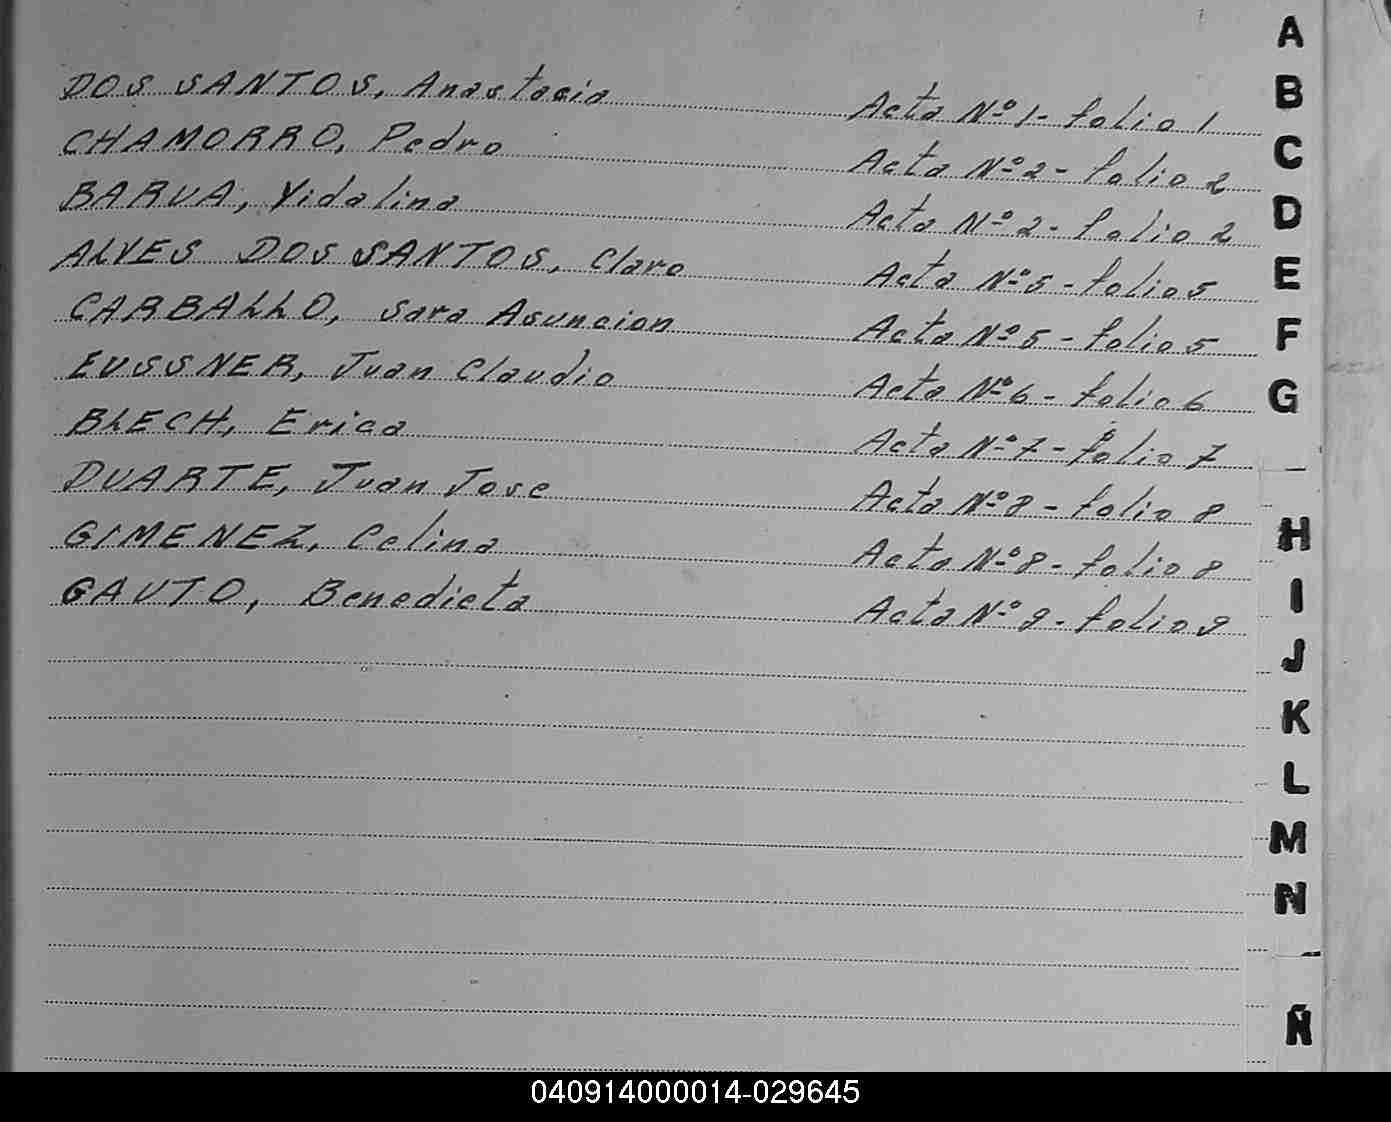 DOS SANTOS, Anastacia Acta Nº 1- folio 1
CHAMORRO, Pedro Acta Nº 2 - folio 2
BARUA, Vidalina Acta Nº 2 - folio 2
ALVES DOS SANTOS, Claro Acta Nº 5 - folio 5
CARBALLO, Sara Asuncion Acta Nº 5 - folio 5
EUSSNER, Juan Claudio Acta Nº 6 - folio 6
BLECH, Erica Acta Nº 7 - folio 7
DUARTE, Juan Jose Acta Nº 8 - folio 8
GIMENEZ, Celina Acta Nº 8 - folio 8
GAUTO, Benedicta Acta Nº 9 - folio 9
A
B
C
D
E
F
G
H
I
J
K
L
M
N
Ñ
040914000014-029645